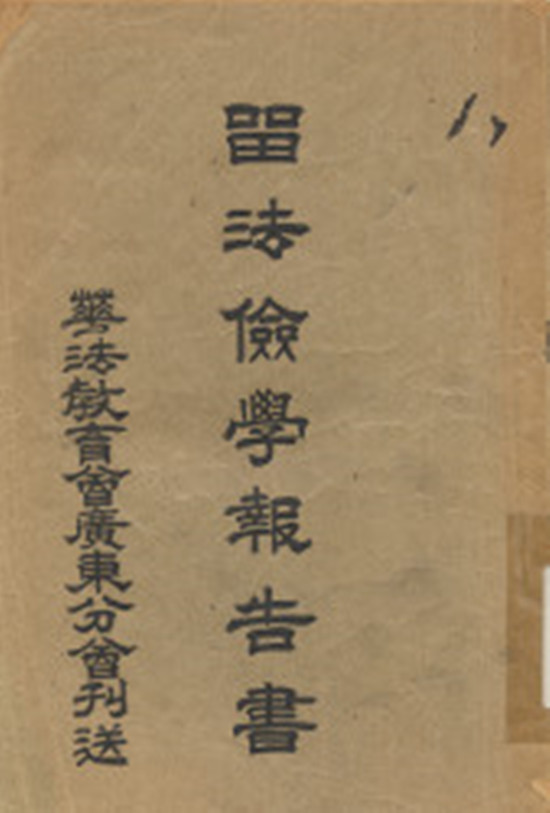 留法儉學報告書
華法教育會廣東分會刊送